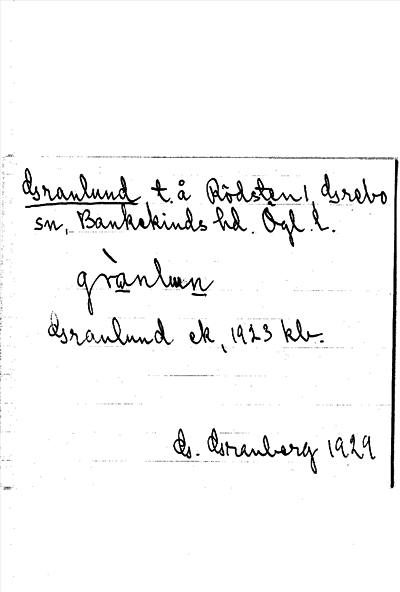 Granlund, t. å Rödsten 1, Grebo
sn, Bankekinds hd. Ögl. l.
grànlun
Granlund ek, 1923 kb.
G. Granberg 1929